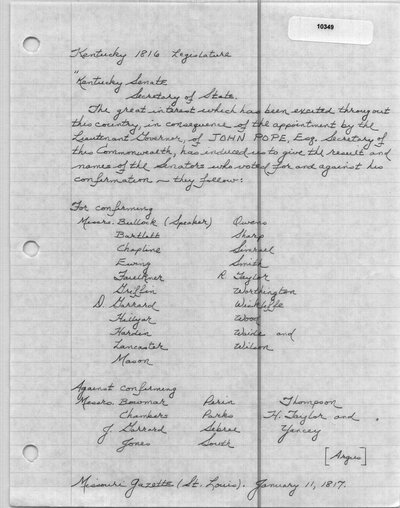 10349
Kentucky 1816 Legislature
"Kentucky Senate
Secretary of State.
The great interest which has been excited througout
this country, in consequence of the appointment by the
Lieutenant Governor, of JOHN POPE, Esq. Secretary of
this Commonwealth, has induced us to give the result and
names of the Senators who voted for and against his
confirmation — they follow:
For confirming
Messrs. Bullock (Speaker) Owens
Bartlett Sharp
Chapline Simrael
Ewing Smith
Faulkner R Taylor
Griffin Worthington
D. Garrard Winkliffe
Hillyar Wood
Harden Waide and
Lancaster Wilson
Mason
Against confirming
Messrs. Bowmar Perin Thompson
Chambers Parks H. Taylor and
J Garrard Sebree Yancey
Jones South
[Argus]
Missouri Gazette (St. Louis). January 11, 1817.